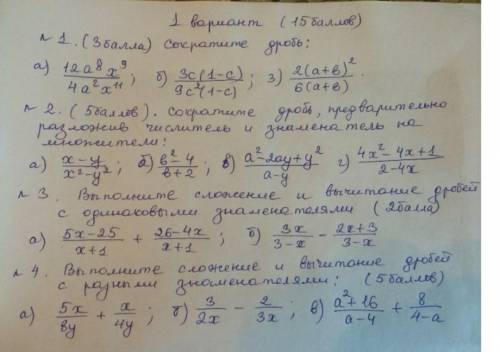 1 вариант (15 баллов)
№ 1. (3 балла) Сократите дробь:
а) 12a⁸x⁹/4a²x¹¹; б) 3c(1-c)/9c²(1-c); з) 2(a+b)²/6(a+b).
№ 2. (5 баллов). Сократите дробь, предварительно
разложив числитель и знаменатель на
множители:
а) x-y/x²-y²; б) b²-4/b+2; в) a²-2ay+y²/a-y; г) 4x²-4x+1/2-4x
№ 3. Выполните сложение и вычитание дробей
с одинаковыми знаменателями (2 балла)
а) 5x-25/x+1 + 26-4x/x+1; б) 3x/3-x - 2x+3/3-x
№ 4. Выполните сложение и вычитание дробей
с разными знаменателями: (5 баллов)
а) 5x/8y + x/4y; б) 3/2x - 2/3x; в) a²+16/a-4 + 8/4-a